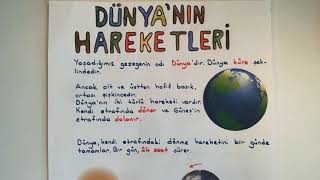 DÜNYA'NIN
HAREKETLERİ
Yaşadığımız gezegenin adı Dünya'dır. Dünya küre şek-
lindedir.
Ancak alt ve üstten hafif basık,
ortası şişkincedir.
Dünya'nın iki türlü hareketi vardır.
Kendi etrafında döner ve Güneş'in
etrafında dolanır.
Dünya, kendi etrafındaki dönme hareketini bir günde
tamamlar. Bir gün, 24 saat sürer.